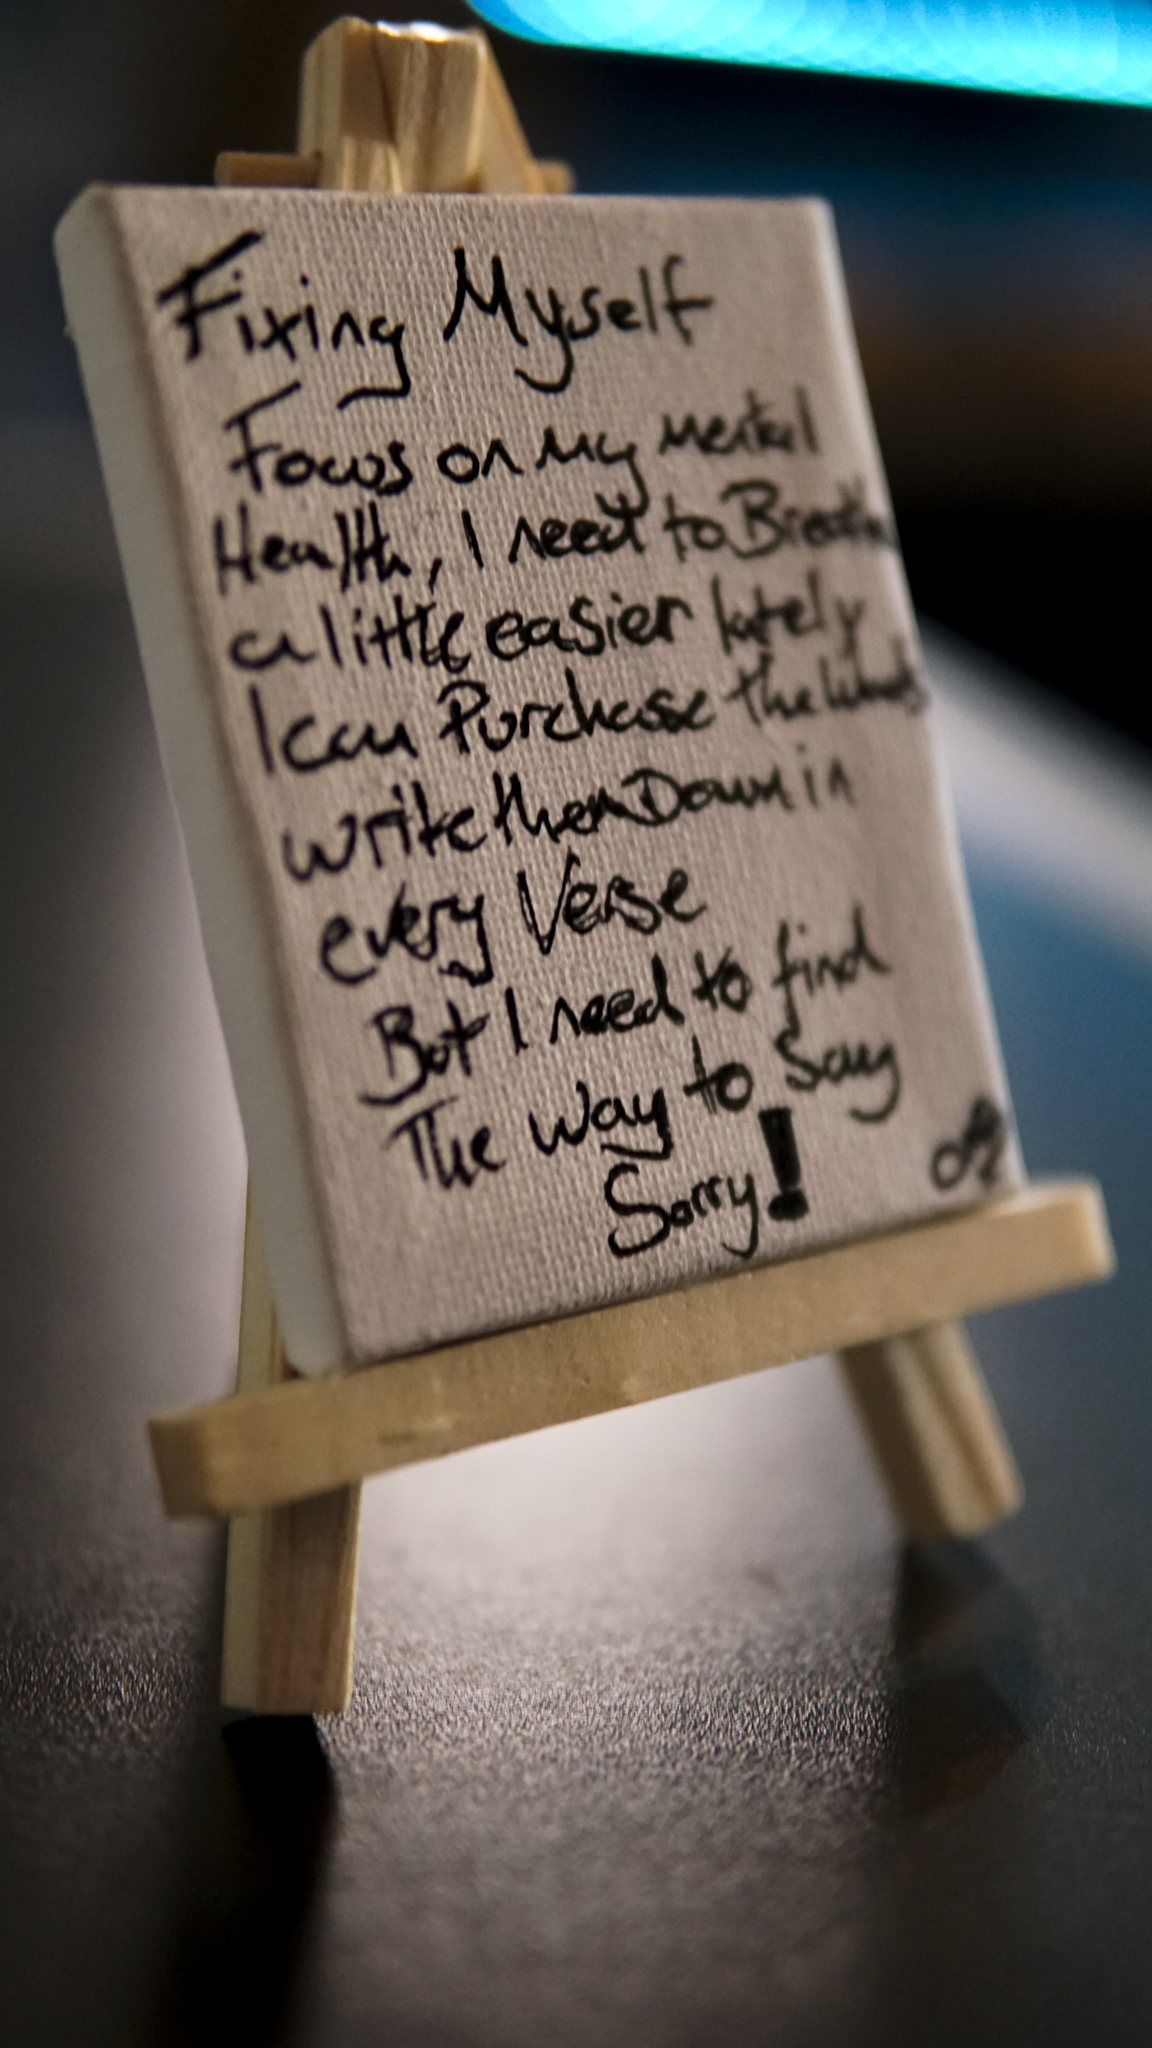 Fixing Myself
Focus on My mental
Health, I need to Breathe
a little easier lately
I can Purchase the Words
write them Down in
every Verse
But I need to find
The way to say
Sorry!